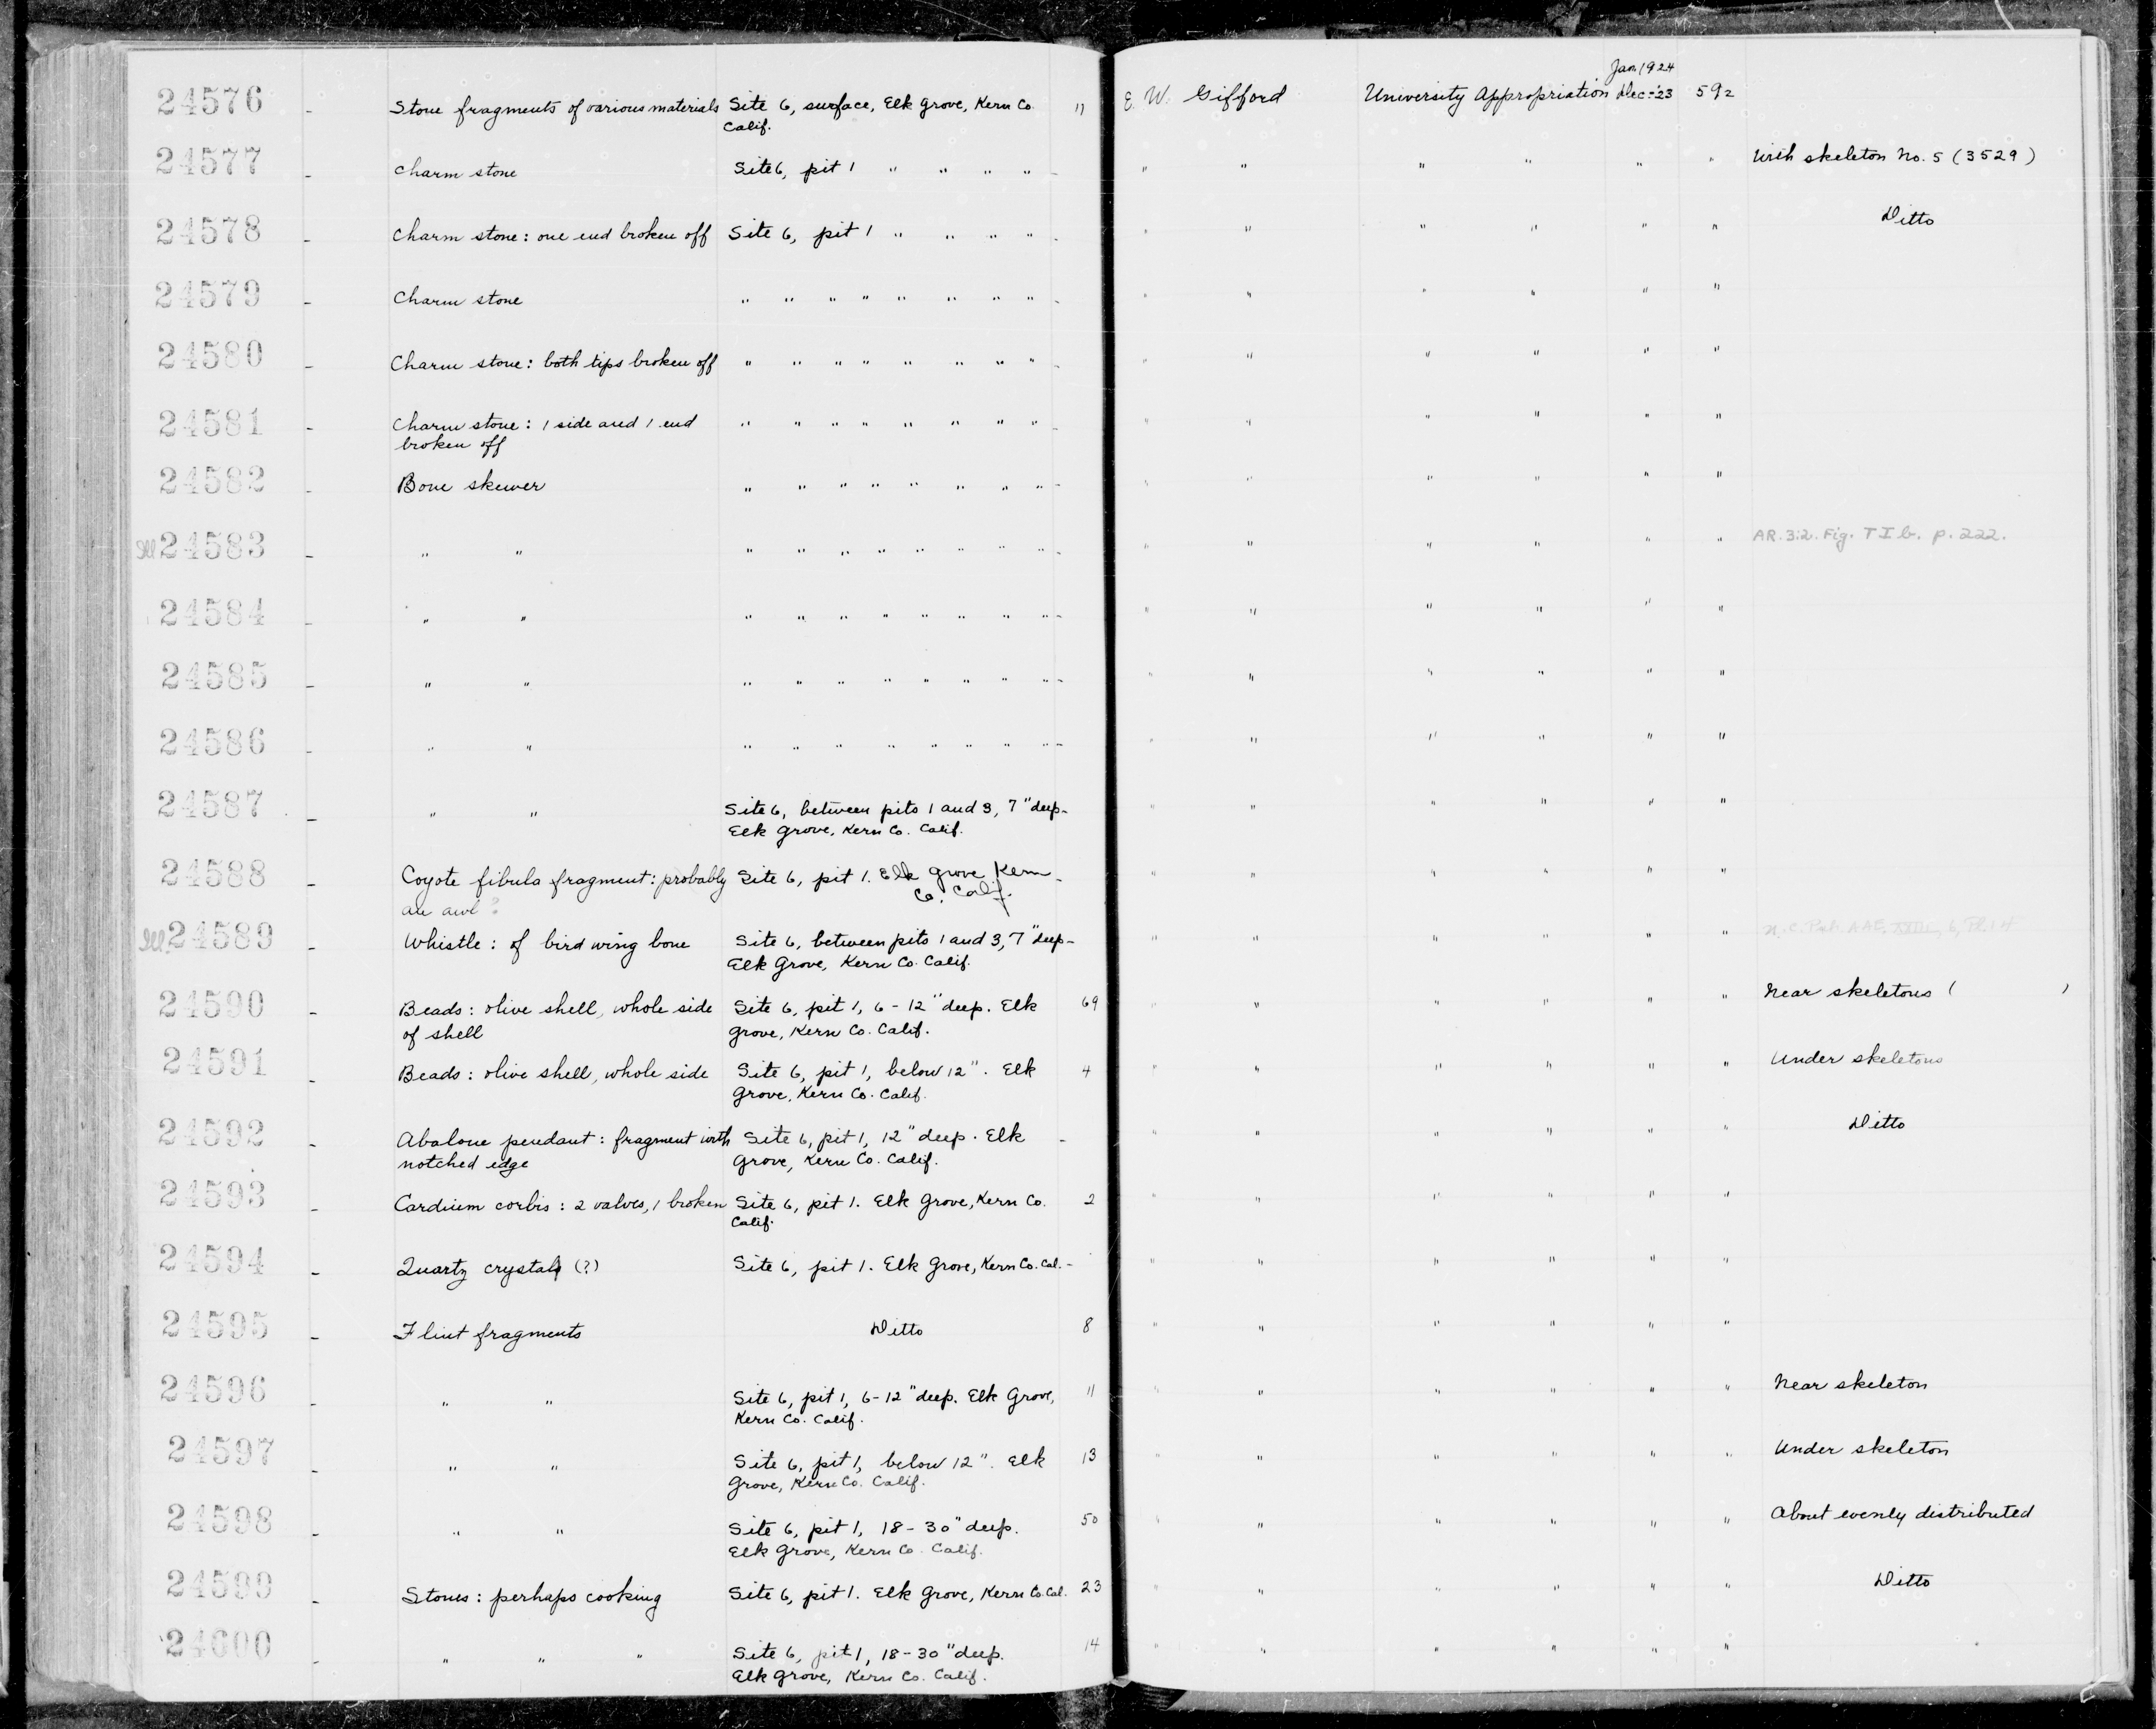 Jan 1924
24576 - Stone fragments of various materials Site 6, surface, Elk Grove, Kern Co. 11 E. W. Gifford University Appropriation Dec-'23 592
Calif.
24577 - Charm stone Site 6, pit 1 " " " " - " " " " " " With skeleton No. 5 (3529)
24578 - Charm stone: one end broken off Site 6, pit 1 " " " " - " " " " " " Ditto
24579 - Charm stone " " " " " " " " - " " " " " "
24580 - Charm stone: both tips broken off " " " " " " " " - " " " " " "
24581 - Charm stone: 1 side and 1 end " " " " " " " " - " " " " " "
broken off
24582 - Bone skewer " " " " " " " " - " " " " " "
Ill 24583 - " " " " " " " " " " - " " " " " " AR.3:2. Fig. T I b. p. 222.
24584 - " " " " " " " " " " - " " " " " "
24585 - " " " " " " " " " " - " " " " " "
24586 - " " " " " " " " " " - " " " " " "
24587 - " " Site 6, between pits 1 and 3, 7" deep - " " " " " "
Elk Grove, Kern Co. Calif.
24588 - Coyote fibula fragment: probably Site 6, pit 1. Elk Grove Kern - " " " " " "
an awl ? Co. Calif.
Ill. 24589 - Whistle: of bird wing bone Site 6, between pits 1 and 3, 7" deep - " " " " " "
Elk Grove, Kern Co. Calif.
24590 - Beads: olive shell, whole side Site 6, pit 1, 6-12" deep. Elk 69 " " " " " " Near skeletons ( )
of shell Grove, Kern Co. Calif.
24591 - Beads: olive shell, whole side Site 6, pit 1, below 12". Elk 4 " " " " " " Under skeletons
Grove, Kern Co. Calif.
24592 - Abalone pendant: fragment with Site 6, pit 1, 12" deep. Elk - " " " " " " Ditto
notched edge Grove, Kern Co. Calif.
24593 - Cardium corbis: 2 valves, 1 broken Site 6, pit 1. Elk Grove, Kern Co. 2 " " " " " "
Calif.
24594 - Quartz crystal (?) Site 6, pit 1. Elk Grove, Kern Co. Cal. - " " " " " "
24595 - Flint fragments Ditto 8 " " " " " "
24596 - " " Site 6, pit 1, 6-12" deep. Elk Grove, 11 " " " " " " Near skeleton
Kern Co. Calif.
24597 - " " Site 6, pit 1, below 12". Elk 13 " " " " " " Under skeleton
Grove, Kern Co. Calif.
24598 - " " Site 6, pit 1, 18-30" deep. 50 " " " " " " About evenly distributed
Elk Grove, Kern Co. Calif.
24599 - Stones: perhaps cooking Site 6, pit 1. Elk Grove, Kern Co. Cal. 23 " " " " " " Ditto
24600 - " " " Site 6, pit 1, 18-30" deep. 14 " " " " " "
Elk Grove, Kern Co. Calif.